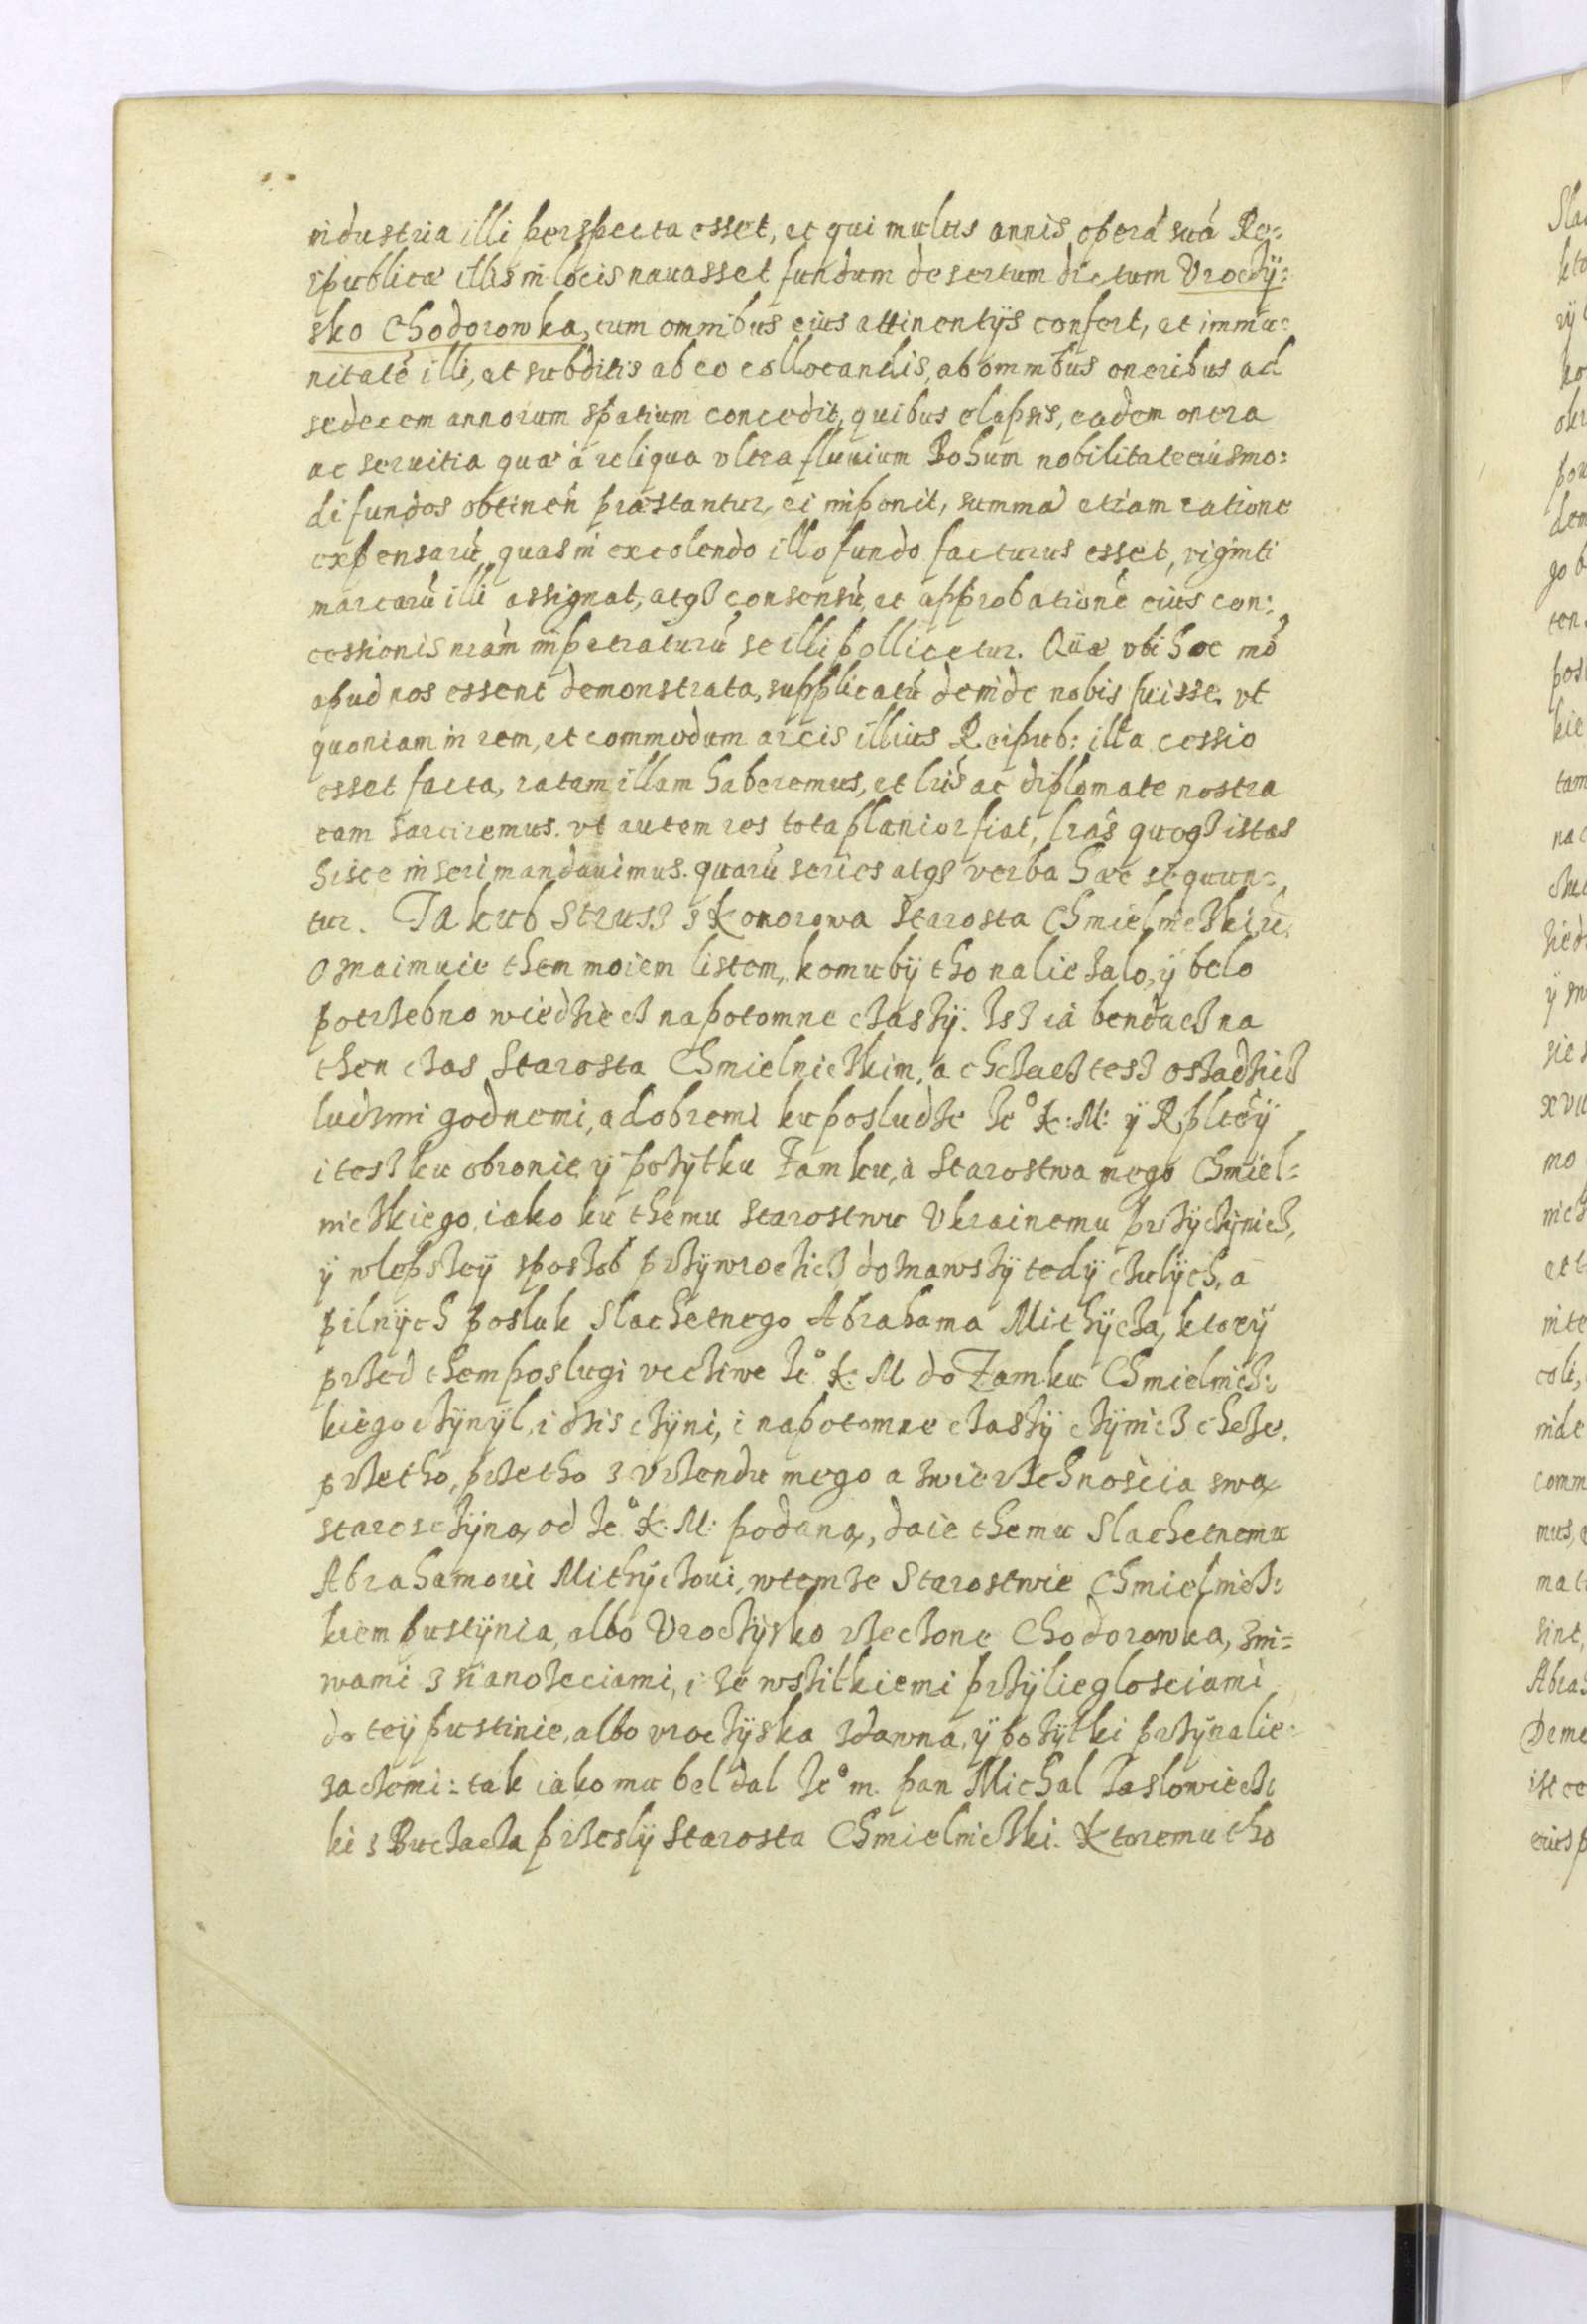 industria illi perspecta esset, et qui multis annis operá suá Re=
ipublicæ illis in locis nauasset fundum desertum dictum Vroczÿ=
sko Chodorowka, cum omnibus eius attinentÿs confert, et immu=
nitatē illi, et subditis ab eo collocandis, ab omnibus oneribus ad
sedecem annorum spatium concedit, quibus elapsis, eadem onera
ac seruitia quæ à reliqua vltra fluuium Bohum nobilitate eiusmo=
di fundos obtinen præstantur, ei imponit, summā etiam ratione
expensarū, quas in excolendo illo fundo facturus esset, viginti
marcarū illi assignat, atq3 consensū, et approbationē eius con=
cessionis nrām impetraturū se illi pollicetur. Quæ vbi hoc mō
apud nos essent demonstrata, supplicatū deinde nobis fuisse. vt
quoniam in rem, et commodum arcis illius Reipub: illa cessio
esset facta, ratam illam haberemus, et lris ac diplomate nostra
eam sarciremus. vt autem res tota planior fiat, lrās quoq3 istas
hisce inseri mandauimus. quarū series atq3 verba hæc sequun=
tur. Jakub Strus3 s Konorowa Starosta Chmielnieczki,
Oznaimuie them moiem listem, komu bÿ tho naliezalo, ÿ belo
potrzebno wiedziecz na potomne czaszÿ. Isz ia bendacz na
then czas Starosta Chmielnieczkim, a chczacz tesz oszadzicz
ludzmi godnemi, a dobremi ku posludze Je° K: M: ÿ Rpltēÿ
i tesz ku obronie, ÿ pozÿtku Zamku, à Starostwa mego Chmiel=
nieczkiego, iako ku themu Starostwu Vkrainemu przÿczÿnicz,
ÿ w lepszeÿ sposzob przÿwroczicz doznawszÿ tedÿ czulÿch, a
pilnÿch posluk Slachetnego Abrahama Mithÿcza, ktorÿ
przed them poslugi vcziwe Je° K: M do Zamku Chmielnicz=
kiego czÿnÿl, i dzis czÿni, i na potomne czaszÿ czÿnicz chcze.
przetho, przetho z Vrzendu mego a zwierzchnościa swą
staroszczÿną, od Je° K: M: podaną, daie themu Slachetnemu
Abrahamowi Mithÿczoui, w temze Starostwie Chmielnicz=
kiem pustÿnia, albo Vroczÿsko rzeczone Chodorowka, z ni=
wami z sianozeciami, i ze wszitkiemi przÿlieglosciami
do teÿ pustinie, albo vroczÿska zdawna, ÿ pozÿtki przÿnalie=
zaczemi: tak iako mu bel dal Je° m. pan Michal Jaslowiecz=
ki s Buczacza przeslÿ Starosta Chmielniczki. Ktoremu tho